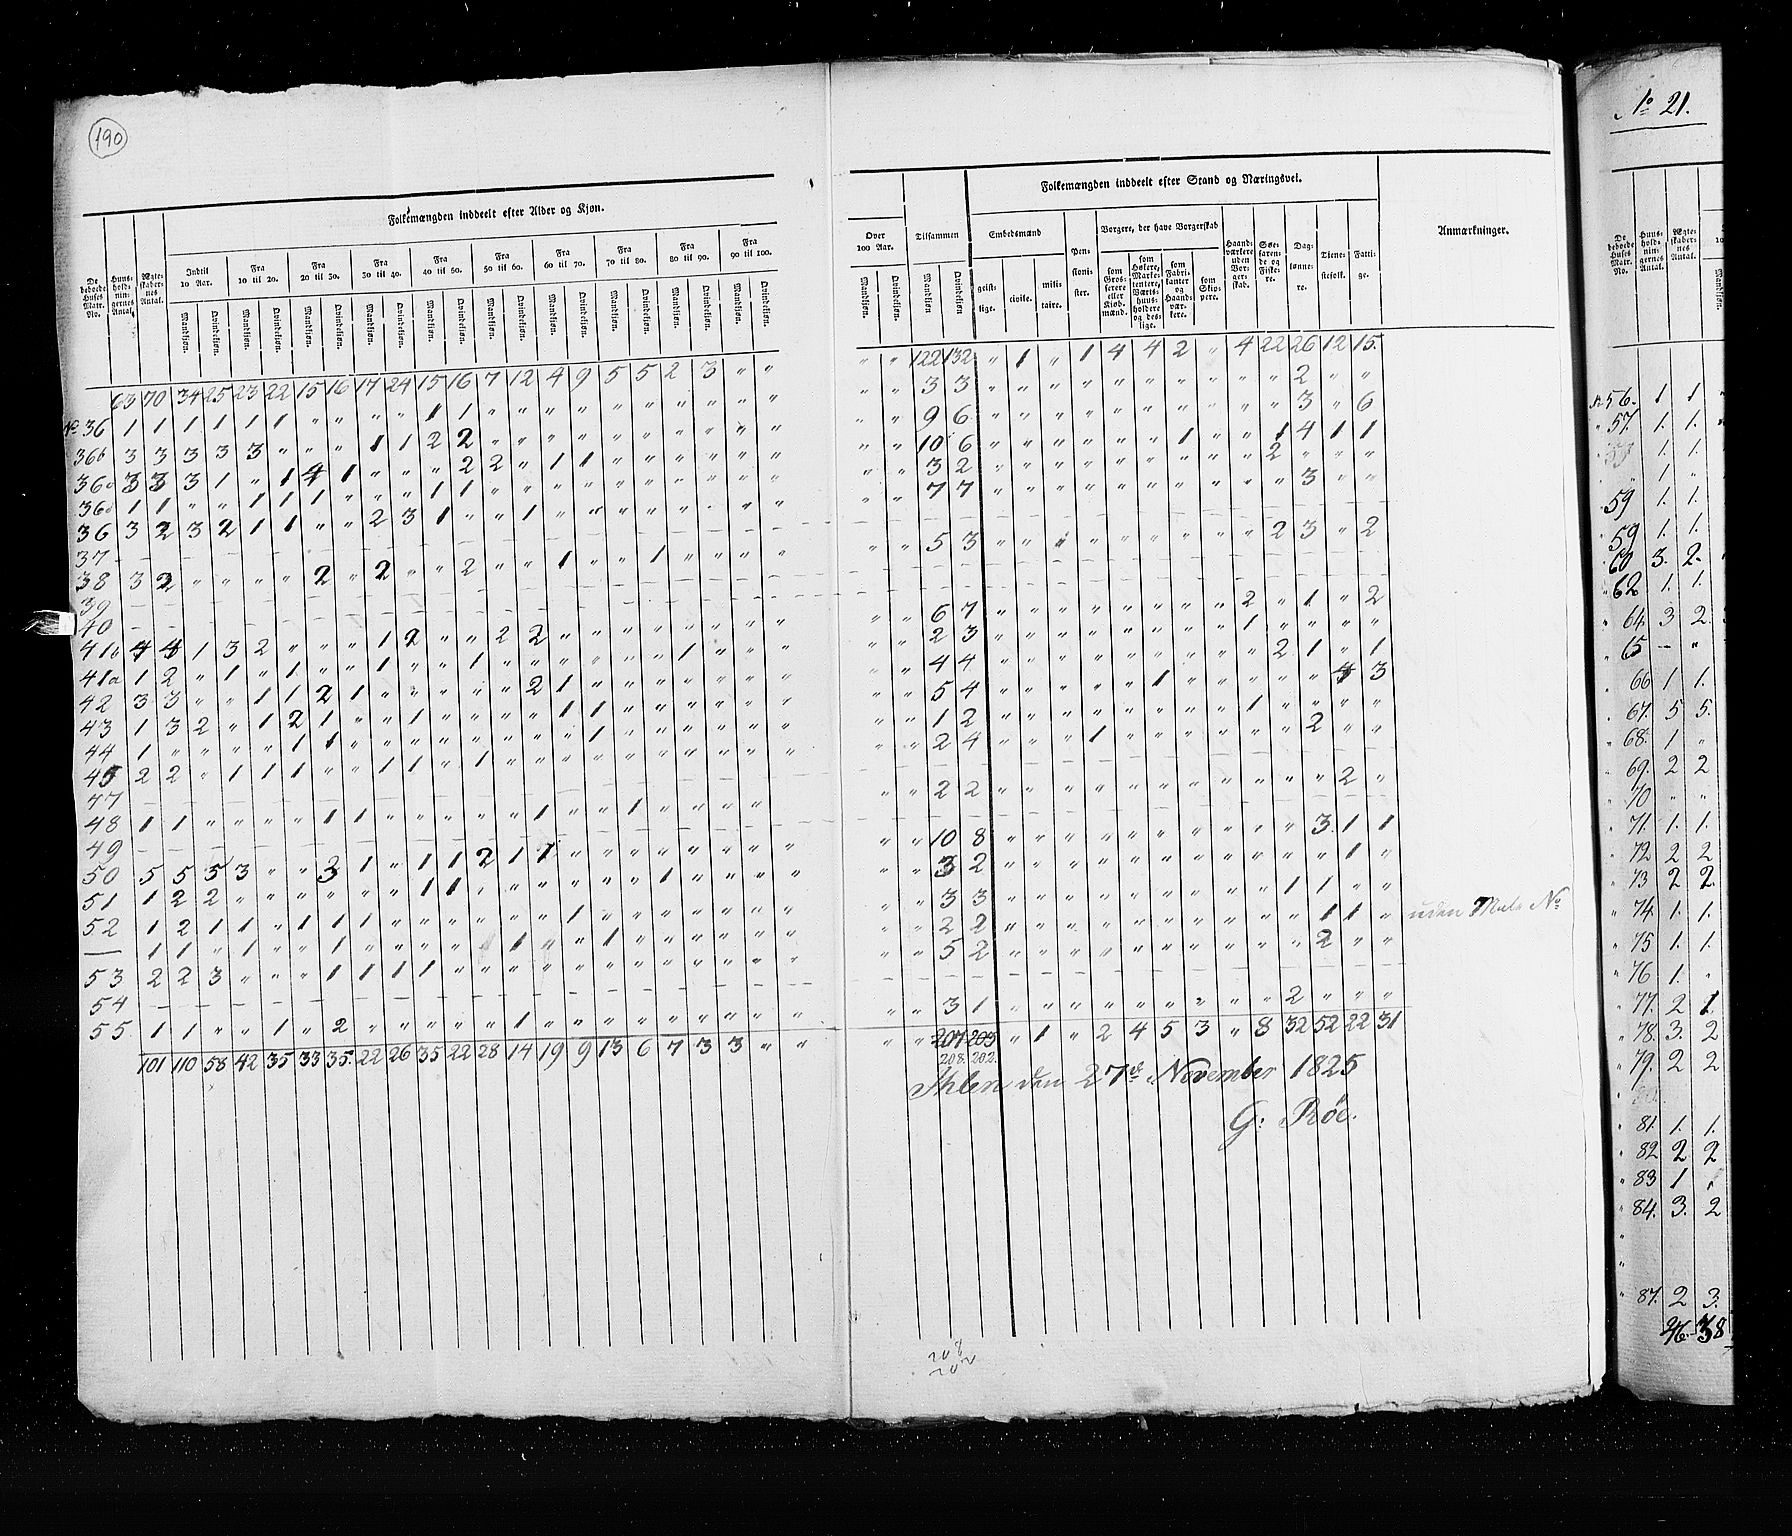 190
Folkemængden inddeelt efter Alder og Kjøn.
De beboede Huses Matr. No.
Huusholdningernes Antal.
Ægteskabernes Antal.
Indtil 10 Aar.
Fra 10 til 20.
Fra 20 til 30.
Fra 30 til 40.
Fra 40 til 50.
Fra 50 til 60.
Fra 60 til 70.
Fra 70 til 80.
Fra 80 til 90.
Fra 90 til 100.
Mandkjøn. Qvindekjøn. Mandkjøn. Qvindekjøn. Mandkjøn. Qvindekjøn. Mandkjøn. Qvindekjøn. Mandkjøn. Qvindekjøn. Mandkjøn. Qvindekjøn. Mandkjøn. Qvindekjøn. Mandkjøn. Qvindekjøn. Mandkjøn. Qvindekjøn. Mandkjøn. Qvindekjøn.
63 70 34 25 23 22 15 16 17 24 15 16 7 12 4 9 5 5 2 3 " "
No 36 1 1 1 1 1 1 " " " " 1 1 " " " " " " " " " "
36b 3 3 3 3 3 " " " 1 1 2 2 " " " " " " " " " "
36 3 3 3 1 " 1 4 1 " " " 2 2 " 1 1 " " " " " "
36 1 1 " " 1 1 1 " " " 1 1 " " " " " " " " " "
36 3 2 3 2 1 1 " " 2 3 1 " " 1 " " " " " " " "
37
38 3 2 " " " " 2 " 2 " " 2 " " 1 " " 1 " " " "
39
40
41b 4 4 1 3 2 " " " 1 2 " " 2 2 " " " " " " " "
41a 1 2 " 1 " 1 " " 1 " " 1 " " " " " " 1 " " "
42 3 3 " " 1 1 2 1 " " " " " 2 1 " " " " " " "
43 1 3 2 " 1 2 1 " " 1 " " " " 1 1 " " " " " "
44 1 " " " " 1 1 " " " " " " " " 1 " " " " " "
45 2 2 " 1 1 1 " " 1 1 " 1 " " " " " " " " " "
47
48 1 1 " " " " 1 1 " " " " " 1 " " 1 " " " " "
49
50 5 5 5 3 " " 3 1 " 1 1 2 1 1 " " " " " " " "
51 1 2 2 " " " " " " 1 1 " " " " " " 1 " " " "
52 1 2 1 1 " 1 1 1 " " " " " " 1 " " " " " " "
— 1 1 " 1 " " 1 " " " " " 1 " " 1 " " " " " "
53 2 2 3 " " " 1 1 1 1 " " " " " " " " " " " "
54
55 1 1 " " 1 " 2 " " " " " 1 " " " " " " " " "
101 110 58 42 35 33 35. 22 26 35 22 28 14 19 9 13 6 7 3 3 " "
Folkemængden inddeelt efter Stand og Næringsvei.
Over 100 Aar.
Mandkjøn. Qvindekjøn.
Tilsammen
Mandkjøn Qvindekjøn.
Embedsmænd
geistlige.
civile.
militaire.
Pensionister.
Borgere, der have Borgerskab
som Grosserere eller Kjøbmænd.
som Høkere, Marketentere, Værtshuusholdere og deslige.
som Fabrikanter og Haandværkere.
som Skippere.
Haandværkere uden Borgerskab.
Søefarende og Fiskere.
Daglønnere.
Tjenestefolk.
Fattige.
Anmærkninger.
" " 122 132 " 1 " 1 4 4 2 " 4 22 26 12 15.
" " 3 3 " " " " " " " " " " 2 " "
" " 9 6 " " " " " " " " " " 3 " 6
" " 10 6 " " " " " " 1 " " 1 4 1 1
" " 3 2 " " " " " " " " " 2 " " "
" " 7 7 " " " " " " " " " " 3 " "
" " 5 3 " " " " " " " " " 2 3 " 2
" " 6 7 " " " " " " " " 2 " 1 " 2
" " 2 3 " " " " " " " " 1 " " " "
" " 4 4 " " " " " " " " " 2 1 " 1
" " 5 4 " " " " " 1 " " " " " 4 3
" " 1 2 " " " " " " " " 1 " " " "
" " 2 4 " " " 1 " " " " " " 2 " "
" " 2 2 " " " " " " " " " " " 2 "
" " 10 8 " " " " " " " " " " 3. 1 1
" " 3 2 " " " " " " " " " " " 1 "
" " 3 3 " " " " " " " " " 1 1 " "
" " 2 2 " " " " " " " " " " 1 1 " uden Matr No
" " 5 2 " " " " " " " " " " 2 " "
" " 3 1 " " " " " " " " " 2 " " "
" " 207 203 " 1 " 2 4 5 3 " 8 32 52 22 31
208. 202.
Ihlen den 27de November 1825
G: Röe.
208
202
No 21.
De beboede Huses Matr. No.
Huusholdningernes Antal.
Ægteskabernes Antal.
No 56. 1 1
" 57. 1. 1.
" 1 "
59 1. 1.
59 1. 1.
" 60 3. 2.
" 62 1. 1.
" 64. 3 2.
" 65 — "
" 66 1 1.
" 67. 5 5.
" 68. 1 "
" 69. 2 2
" 70 " "
" 71. 1. 1.
" 72 2 2
" 73 2 2.
" 74. 1. 1.
" 75 1. 1.
" 76 1. "
" 77. 2 1.
" 78. 3. 2
" 79. 2 2
" 81. 1. 1.
" 82 2 2
" 83 1 "
" 84. 3. 2
"
"
" 87. 2 3.
46. 38